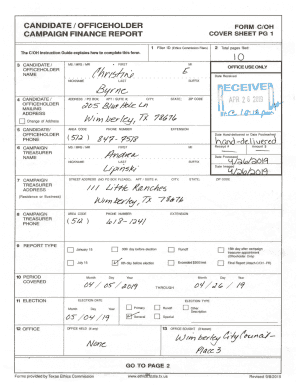 CANDIDATE / OFFICEHOLDER
CAMPAIGN FINANCE REPORT
FORM C/OH
COVER SHEET PG 1
The C/OH Instruction Guide explains how to complete this form.
1 Filer ID (Ethics Commission Filers)
2 Total pages filed:
10
3 CANDIDATE / OFFICEHOLDER NAME
MS / MRS / MR FIRST MI
Christine E
NICKNAME LAST SUFFIX
Byrne
OFFICE USE ONLY
Date Received
RECEIVED
APR 26 2019
4 CANDIDATE / OFFICEHOLDER MAILING ADDRESS
Change of Address
ADDRESS / PO BOX; APT / SUITE #; CITY; STATE; ZIP CODE
205 Blue Hole Ln
Wimberley, TX 78676
5 CANDIDATE/ OFFICEHOLDER PHONE
AREA CODE PHONE NUMBER EXTENSION
(512) 847-9518
Date Hand-delivered or Date Postmarked
hand-delivered
Receipt # Amount $
6 CAMPAIGN TREASURER NAME
MS / MRS / MR FIRST MI
Andrea
NICKNAME LAST SUFFIX
Lipinski
Date Processed
4/26/2019
Date Imaged
4/26/2019
7 CAMPAIGN TREASURER ADDRESS
(Residence or Business)
STREET ADDRESS (NO PO BOX PLEASE); APT / SUITE #; CITY; STATE; ZIP CODE
111 Little Ranches
Wimberley, TX 78676
8 CAMPAIGN TREASURER PHONE
AREA CODE PHONE NUMBER EXTENSION
(512) 618-1241
9 REPORT TYPE
January 15
30th day before election
Runoff
15th day after campaign treasurer appointment (Officeholder Only)
July 15
8th day before election
Exceeded $500 limit
Final Report (Attach C/OH - FR)
10 PERIOD COVERED
Month Day Year
04 / 05 / 2019
THROUGH
Month Day Year
04 / 26 / 19
11 ELECTION
ELECTION DATE
Month Day Year
05 / 04 / 19
ELECTION TYPE
Primary
Runoff
Other Description
General
Special
12 OFFICE
OFFICE HELD (if any)
None
13 OFFICE SOUGHT (if known)
Wimberley City Council -
Place 3
GO TO PAGE 2
Forms provided by Texas Ethics Commission
www.ethics.state.tx.us
Revised 9/8/2015